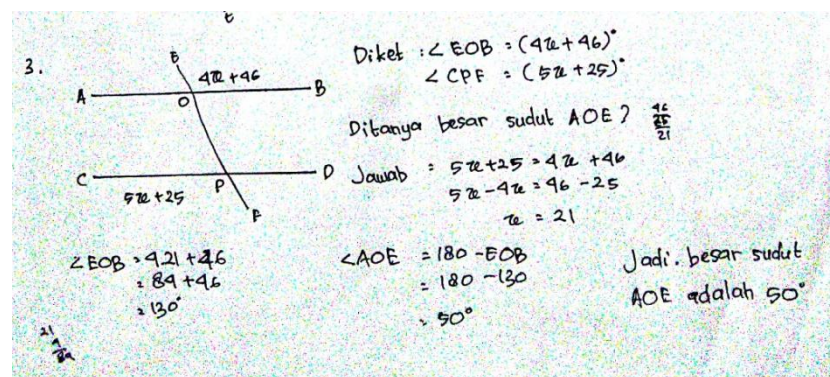 t
3.
E
4x + 46
A
O
B
C
5x + 25
P
D
F
Diket : ∠ EOB = (4x + 46)°
∠ CPF = (5x + 25)°
Ditanya besar sudut AOE?
46
25
21
Jawab : 5x + 25 = 4x + 46
5x - 4x = 46 - 25
x = 21
∠ EOB = 4.21 + 46
= 84 + 46
= 130°
21
4
84
∠AOE = 180 - EOB
= 180 - 130
= 50°
Jadi. besar sudut
AOE adalah 50°